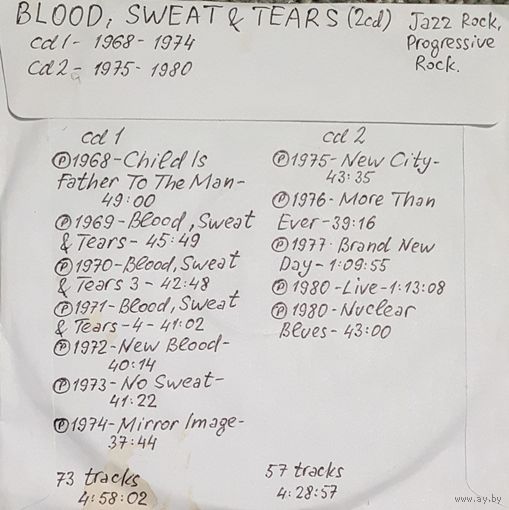 BLOOD, SWEAT & TEARS (2cd) Jazz Rock,
cd1- 1968- 1974 Progressive
cd2- 1975- 1980 Rock.
cd1
Ⓟ1968-Child Is
Father To The Man-
49:00
Ⓟ1969-Blood, Sweat
& Tears- 45:49
Ⓟ1970-Blood, Sweat
& Tears 3- 42:48
Ⓟ1971-Blood, Sweat
& Tears-4- 41:02
Ⓟ1972-New Blood-
40:14
Ⓟ1973-No Sweat-
41:22
Ⓟ1974-Mirror Image-
37:44
73 tracks
4:58:02
cd 2
Ⓟ1975-New City-
43:35
Ⓟ1976-More Than
Ever-39:16
Ⓟ1977-Brand New
Day-1:09:55
Ⓟ1980-Live-1:13:08
Ⓟ1980-Nuclear
Blues-43:00
57 tracks
4:28:57
www.ay.by